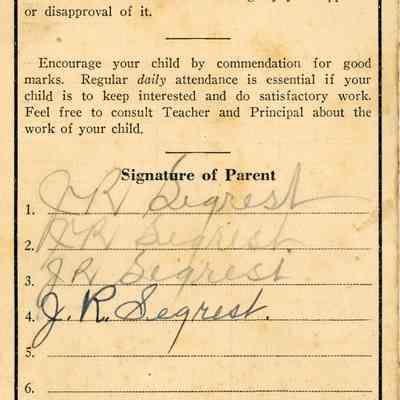 or disapproval of it.
Encourage your child by commendation for good
marks. Regular daily attendance is essential if your
child is to keep interested and do satisfactory work.
Feel free to consult Teacher and Principal about the
work of your child.
Signature of Parent
1. J R Segrest
2. J R Segrest
3. J R Segrest
4. J. R. Segrest.
5.
6.